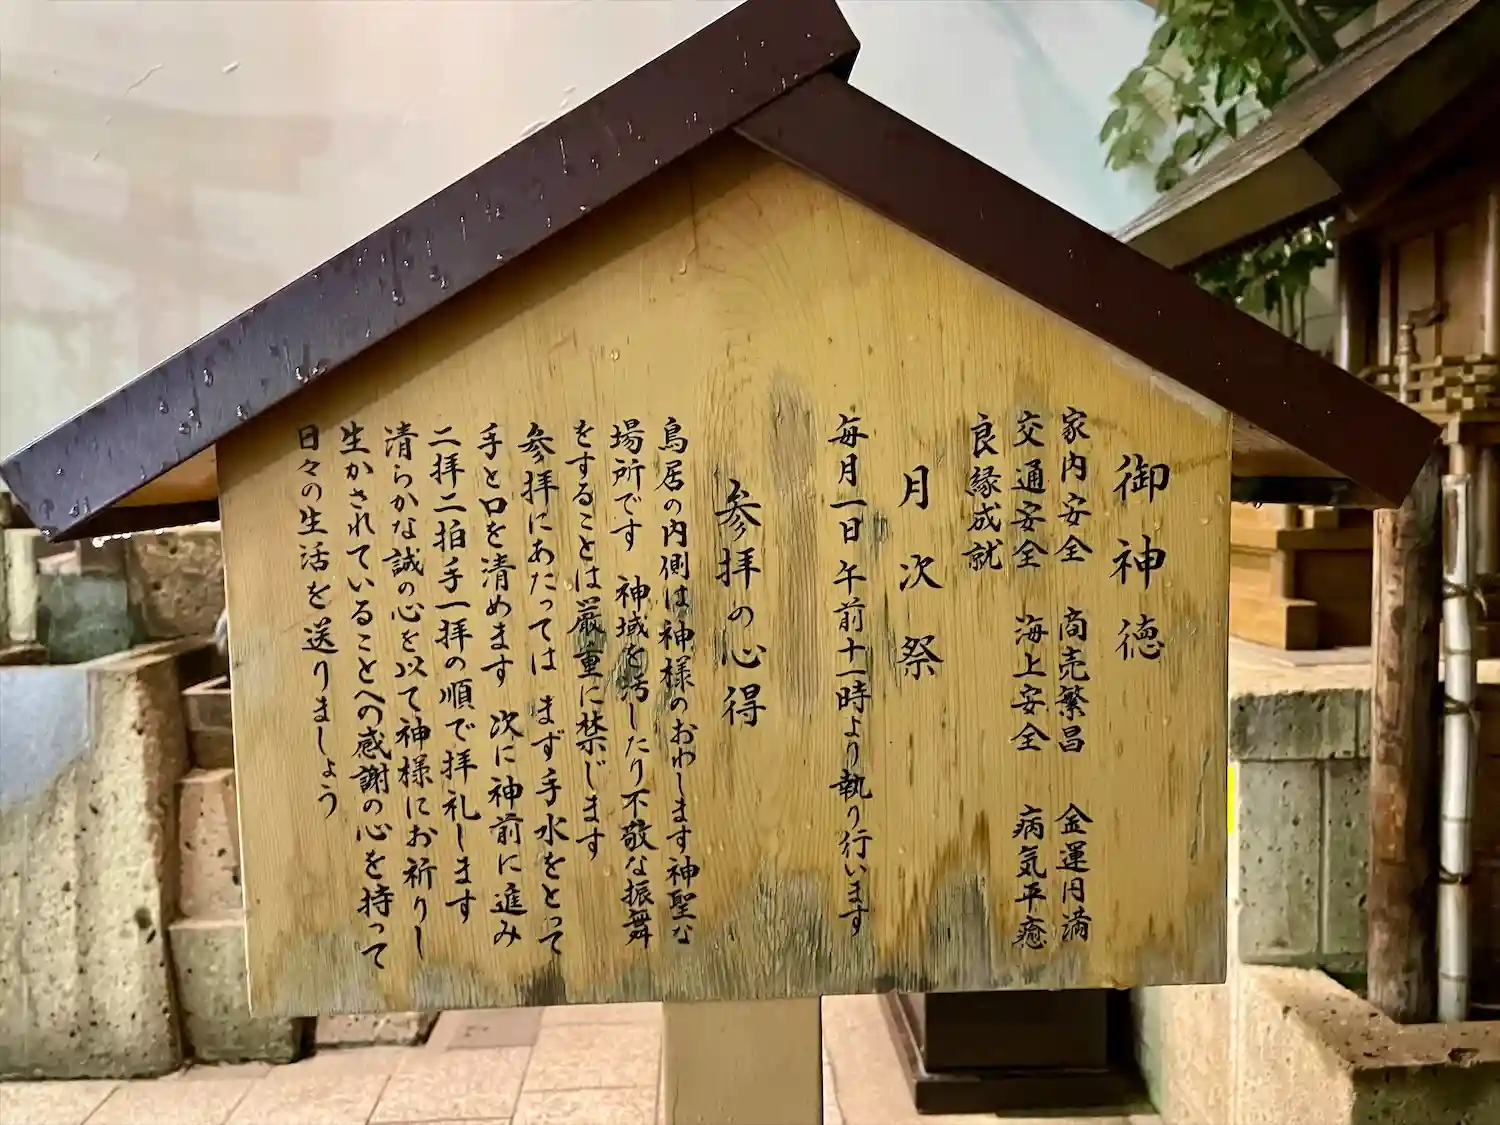 御神徳
家内安全　商売繁昌　金運円満
交通安全　海上安全　病気平癒
良縁成就
月次祭
毎月一日 午前十一時より執り行います
参拝の心得
鳥居の内側は神様のおわします神聖な
場所です　神域を汚したり不敬な振舞
をすることは厳重に禁じます
参拝にあたっては まず手水をとって
手と口を清めます　次に神前に進み
二拝二拍手一拝の順で拝礼します
清らかな誠の心を以て神様にお祈りし
生かされていることへの感謝の心を持って
日々の生活を送りましょう